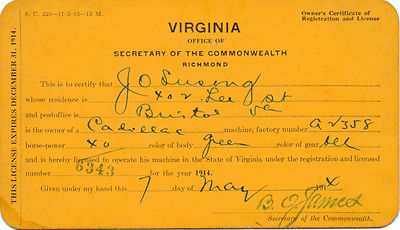 S. C. 223—11-5-13—15 M.
Owner's Certificate of
Registration and License
VIRGINIA
OFFICE OF
SECRETARY OF THE COMMONWEALTH
RICHMOND
THIS LICENSE EXPIRES DECEMBER 31, 1914.
This is to certify that J O Susong
whose residence is 402 Lee St
and postoffice is Bristol Va
is the owner of a Cadillac machine, factory number A 2358
horse-power 40 color of body green color of gear
and is hereby licensed to operate his machine in the State of Virginia under the registration and licensed
number 6343 for the year 1914.
Given under my hand this 7 day of May 1914
B. O. James
Secretary of the Commonwealth.